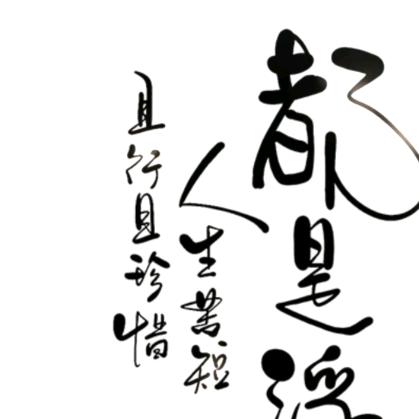 都是浮
人生苦短
且行且珍惜